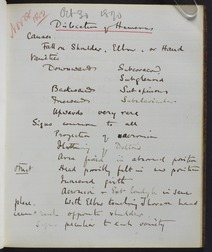 Oct 30 1890
Dislocation of Humerus
Causes
Fall on Shoulder, Elbow, or Hand
Varieties
Downwards Subcoracoid
Subglenoid
Backwards Subspinous
Forwards Subclavicular
Upwards very rare
Signs common to all
Projection of acromion
Flattening of Deltoid
Arm fixed in abnormal position
Head possibly felt in new position
Increased girth
Acromion & Ext. Condyle in same
plane. With Elbow touching Thorax hand
cannot touch opposite shoulder
Signs peculiar to each variety